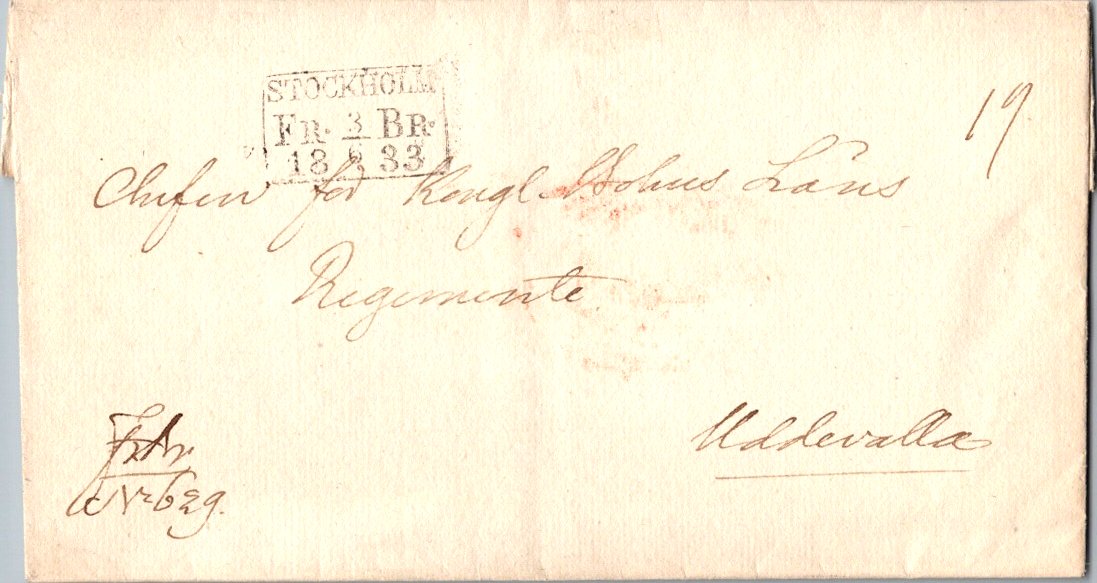 STOCKHOLM
FR. 3 BR.
18 6 33
19
Chefen för Kongl Bohus Läns
Regemente
Uddevalla
FrBr
Nr 629.